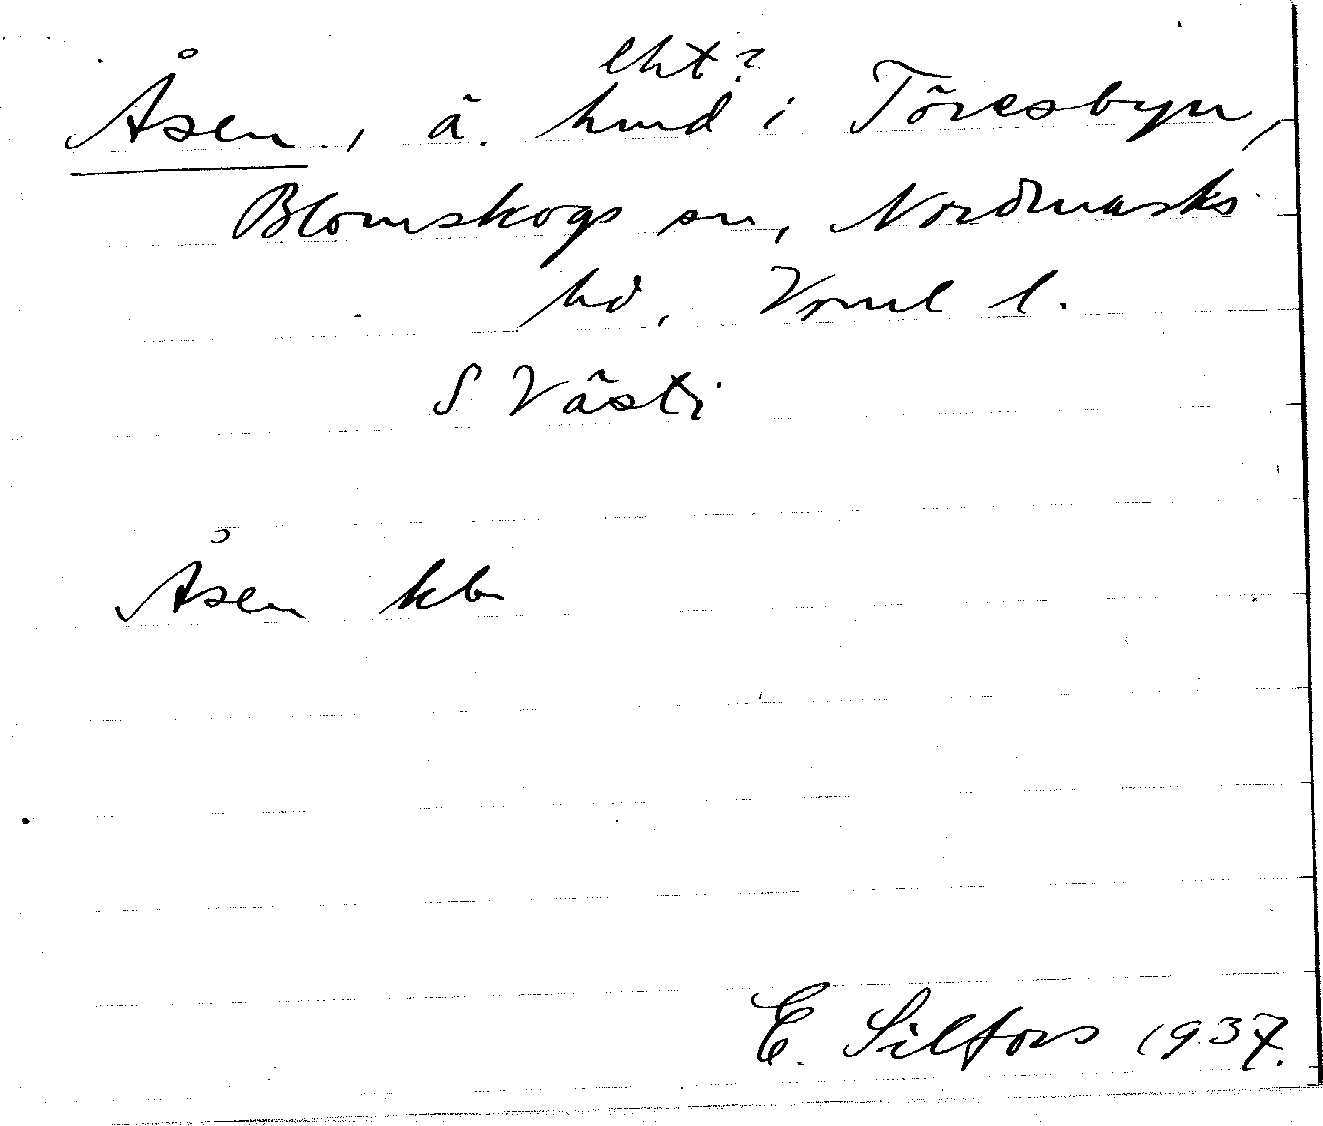 lht?
Åsen, ä. hmd i Töresbyn,
Blomskogs sn, Nordmarks
hd, Vrml l.
S Västi
Åsen kbr
E. Silfors 1937.